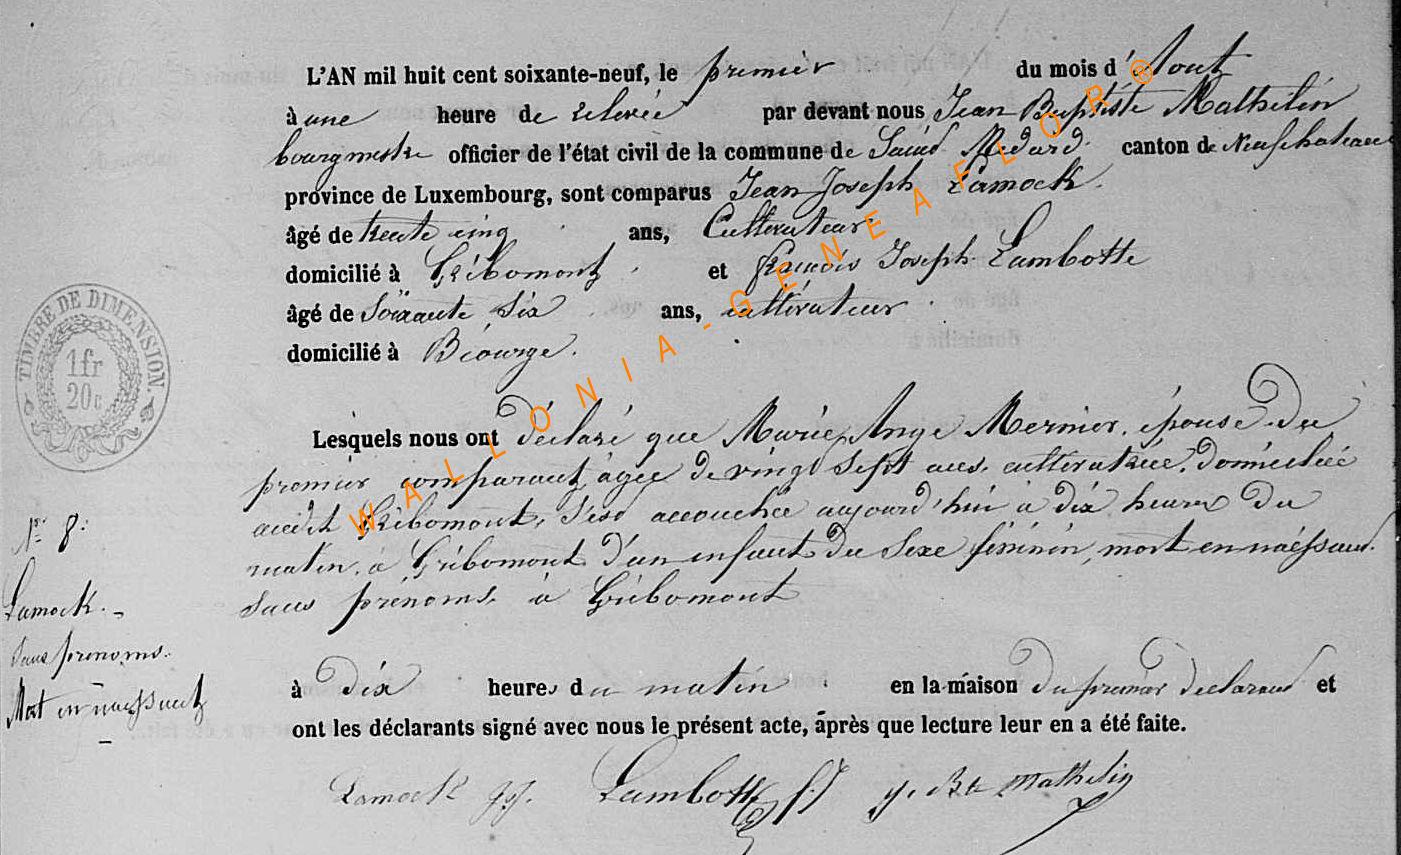 L'AN mil huit cent soixante-neuf, le premier du mois d'Aout
à une heure de relevée par devant nous Jean Baptiste Mathelin
bourgmestre officier de l'état civil de la commune de Saint Médard canton de Neufchateau
province de Luxembourg, sont comparus Jean Joseph Lamock.
âgé de trente cinq ans, Cultivateur
domicilié à Gribomont, et François Joseph Lambotte
âgé de Soixante Six ans, cultivateur
domicilié à Biourge.
Lesquels nous ont déclaré que Marie Ange Mernier, épouse du
premier comparant, âgée de vingt Sept ans, cultivatrice, domiciliée
audit Gribomont, s'est accouchée aujourd'hui à dix heures du
matin, à Gribomont d'un enfant du Sexe féminin, mort en naissant.
Sans prénoms, à Gribomont
à dix heures du matin en la maison du premier déclarant et
ont les déclarants signé avec nous le présent acte, après que lecture leur en a été faite.
Lamock JJ. Lambotte f. J J. Bte Mathelin
N° 8.
Lamock.
Sans prénoms.
Mort en naissant
TIMBRE DE DIMENSION.
1fr
20c
WALLONIA-GENEAFLOR®